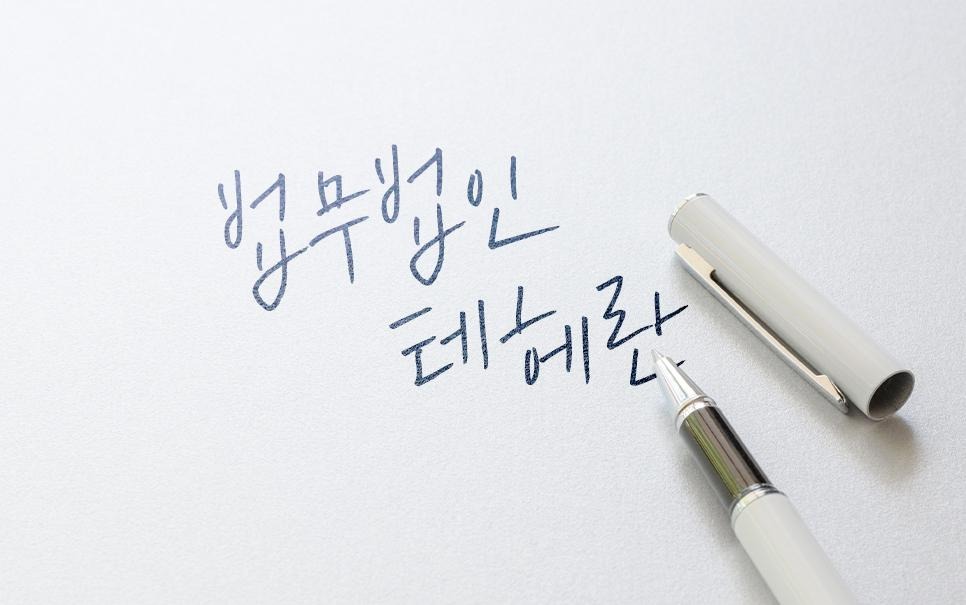 법무법인
테헤란